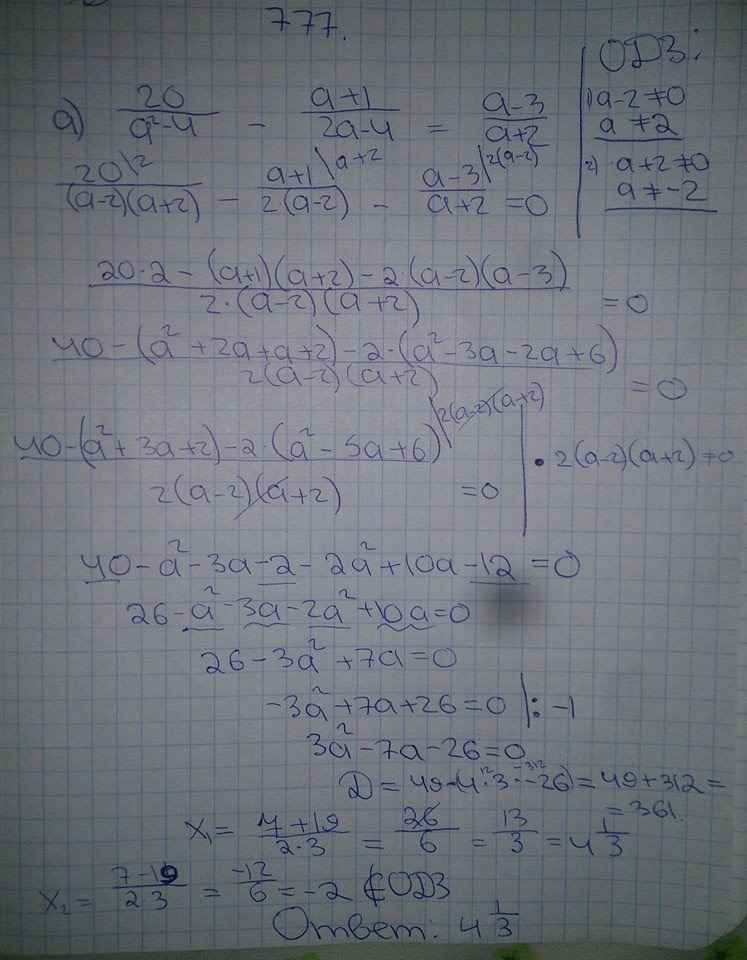 777.
а) 20/(a²-4) - (a+1)/(2a-4) = (a-3)/(a+2)
ОДЗ:
1) a-2≠0
a≠2
2) a+2≠0
a≠-2
20\2/((a-2)(a+2)) - a+1\a+2/(2(a-2)) - a-3\2(a-2)/(a+2) =0
(20·2-(a+1)(a+2)-2·(a-2)(a-3))/(2·(a-2)(a+2)) =0
(40-(a²+2a+a+2)-2·(a²-3a-2a+6))/(2(a-2)(a+2)) =0
(40-(a²+3a+2)-2·(a²-5a+6))\2(a-2)(a+2)/(2(a-2)(a+2)) =0 | ·2(a-2)(a+2)≠0
40-a²-3a-2-2a²+10a-12=0
26-a²-3a-2a²+10a=0
26-3a²+7a=0
-3a²+7a+26=0 |: -1
3a²-7a-26=0
D=49-(4·3·-26)=49+312=
=361.
x₁= (7+19)/(2·3) = 26/6 = 13/3 = 4 1/3
x₂= (7-19)/(2·3) = -12/6 = -2 ∉ ОДЗ
Ответ: 4 1/3